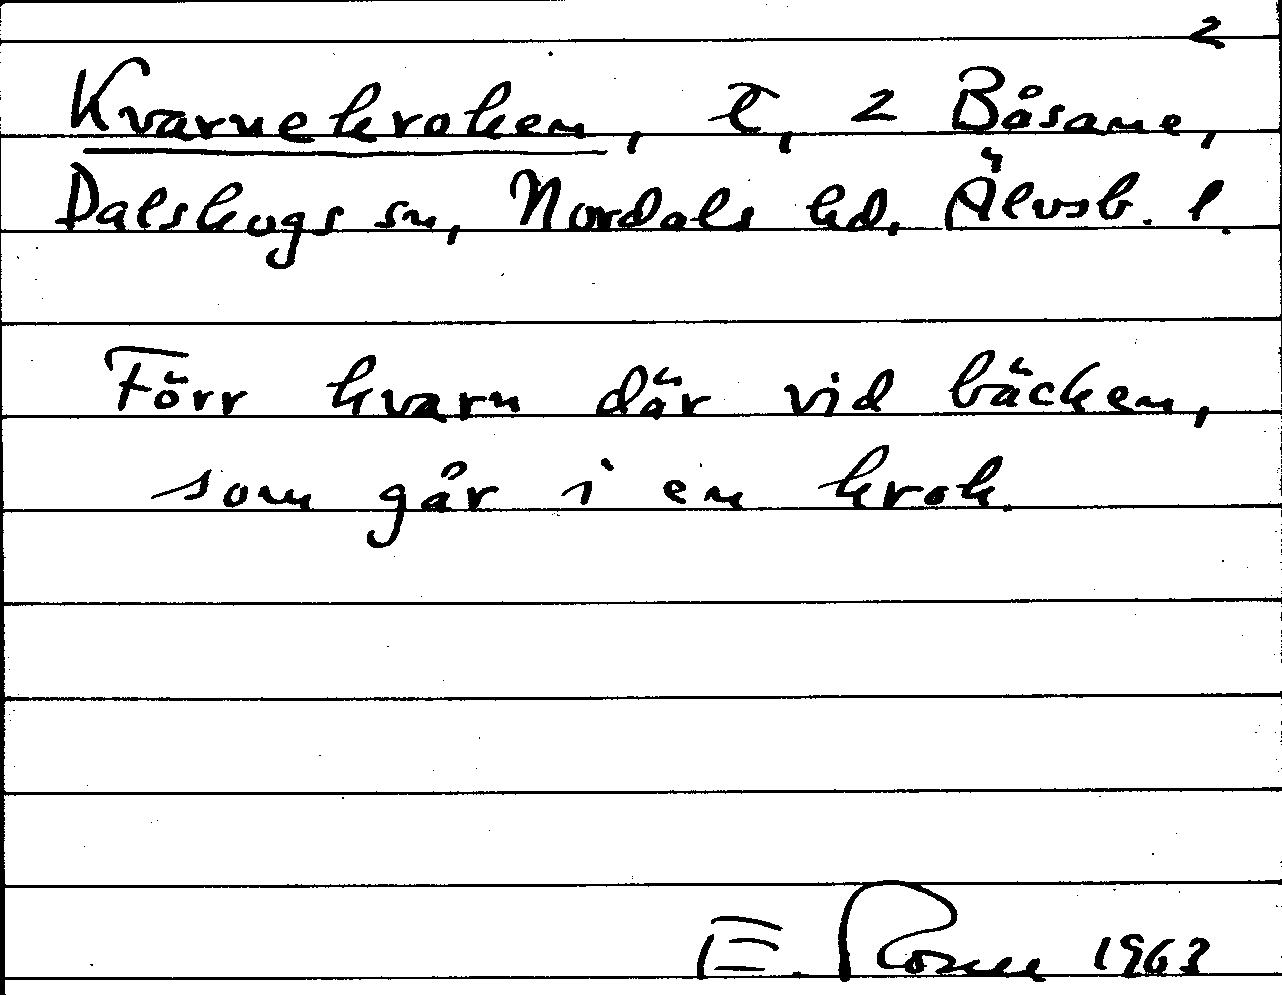 2
Kvarnekroken, t, 2 Båsane,
Dalskogs sn, Nordals hd. Älvsb. l.
Förr kvarn där vid bäcken,
som går i en krok.
E. Rosell 1963